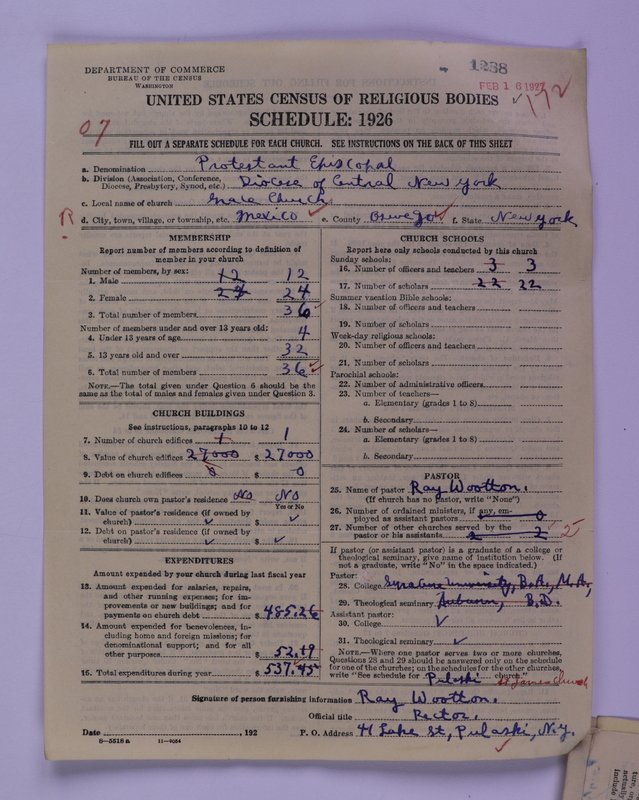 DEPARTMENT OF COMMERCE
BUREAU OF THE CENSUS
WASHINGTON
1238
FEB 16 1927
172
UNITED STATES CENSUS OF RELIGIOUS BODIES
SCHEDULE: 1926
07
FILL OUT A SEPARATE SCHEDULE FOR EACH CHURCH. SEE INSTRUCTIONS ON THE BACK OF THIS SHEET
a. Denomination Protestant Episcopal
b. Division (Association, Conference, Diocese, Presbytery, Synod, etc.) Diocese of Central New York
c. Local name of church Grace Church
R d. City, town, village, or township, etc. Mexico e. County Oswego f. State New York
MEMBERSHIP
Report number of members according to definition of
member in your church
Number of members, by sex:
1. Male 12 12
2. Female 24 24
3. Total number of members 36
Number of members under and over 13 years old:
4. Under 13 years of age 4
5. 13 years old and over 32
6. Total number of members 36
NOTE.—The total given under Question 6 should be the
same as the total of males and females given under Question 3.
CHURCH BUILDINGS
See instructions, paragraphs 10 to 12
7. Number of church edifices 1 1
8. Value of church edifices 27000 $ 27000
9. Debt on church edifices 0 $ 0
10. Does church own pastor's residence No No
Yes or No
11. Value of pastor's residence (if owned by
church) ✓ $ ✓
12. Debt on pastor's residence (if owned by
church) ✓ $ ✓
EXPENDITURES
Amount expended by your church during last fiscal year
13. Amount expended for salaries, repairs,
and other running expenses; for im-
provements or new buildings; and for
payments on church debt $ 485.26
14. Amount expended for benevolences, in-
cluding home and foreign missions; for
denominational support; and for all
other purposes $ 52.19
15. Total expenditures during year $ 537.45
CHURCH SCHOOLS
Report here only schools conducted by this church
Sunday schools:
16. Number of officers and teachers 3 3
17. Number of scholars 22 22
Summer vacation Bible schools:
18. Number of officers and teachers
19. Number of scholars
Week-day religious schools:
20. Number of officers and teachers
21. Number of scholars
Parochial schools:
22. Number of administrative officers
23. Number of teachers—
a. Elementary (grades 1 to 8)
b. Secondary
24. Number of scholars—
a. Elementary (grades 1 to 8)
b. Secondary
PASTOR
25. Name of pastor Ray Wootton.
(If church has no pastor, write "None")
26. Number of ordained ministers, if any, em-
ployed as assistant pastors 0
27. Number of other churches served by the
pastor or his assistants 2 2
If pastor (or assistant pastor) is a graduate of a college or
theological seminary, give name of institution below. (If
not a graduate, write "No" in the space indicated.)
Pastor:
28. College Syracuse University, B.A., M.A.,
29. Theological seminary Auburn, B.D.
Assistant pastor:
30. College ✓
31. Theological seminary ✓
NOTE.—Where one pastor serves two or more churches,
Questions 28 and 29 should be answered only on the schedule
for one of the churches; on the schedules for the other churches,
write "See schedule for Pulaski church." St. James Church
Signature of person furnishing information Ray Wootton.
Official title Rector.
Date , 192 P. O. Address 41 Lake St., Pulaski, N.Y.
8—5518 a 11—9054